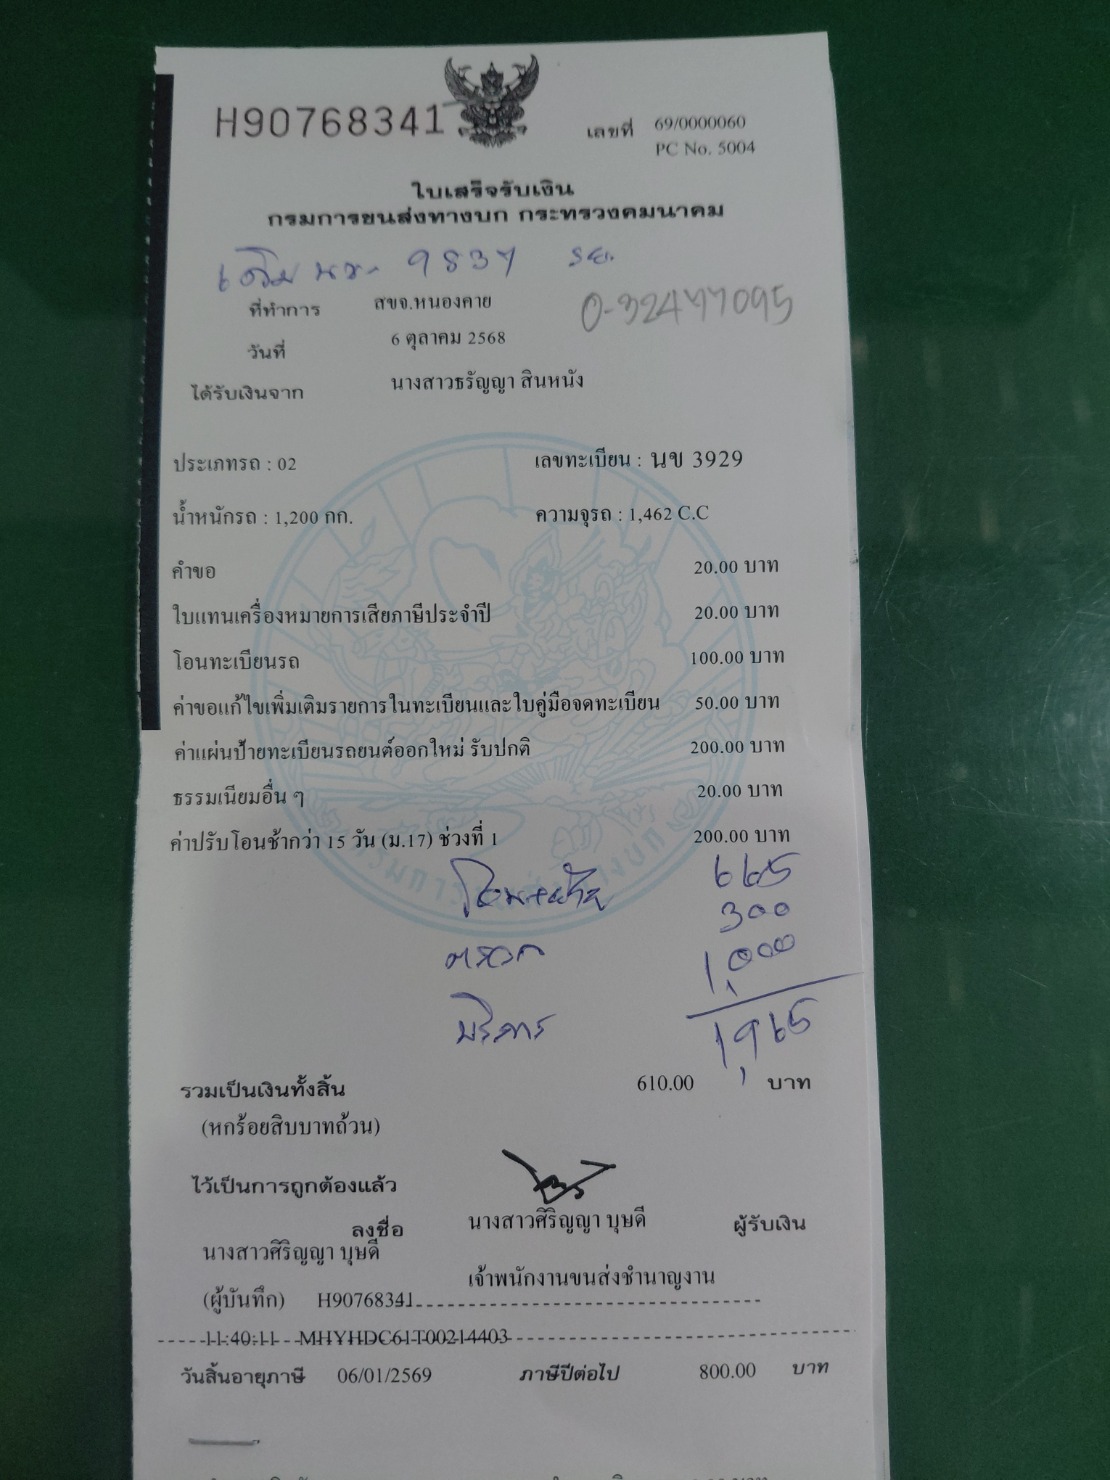 H90768341
เลขที่ 69/0000060
PC No. 5004
ใบเสร็จรับเงิน
กรมการขนส่งทางบก กระทรวงคมนาคม
เดิม นข- 9837 รย.
ที่ทำการ สขจ.หนองคาย
0-32477095
วันที่ 6 ตุลาคม 2568
ได้รับเงินจาก นางสาวธรัญญา สินหนัง
ประเภทรถ : 02 เลขทะเบียน : นข 3929
น้ำหนักรถ : 1,200 กก. ความจุรถ : 1,462 C.C
คำขอ 20.00 บาท
ใบแทนเครื่องหมายการเสียภาษีประจำปี 20.00 บาท
โอนทะเบียนรถ 100.00 บาท
ค่าขอแก้ไขเพิ่มเติมรายการในทะเบียนและใบคู่มือจดทะเบียน 50.00 บาท
ค่าแผ่นป้ายทะเบียนรถยนต์ออกใหม่ รับปกติ 200.00 บาท
ธรรมเนียมอื่น ๆ 20.00 บาท
ค่าปรับโอนช้ากว่า 15 วัน (ม.17) ช่วงที่ 1 200.00 บาท
โอน+ย้าย 665
300
ตรวจ 1,000
บริการ 1,965
รวมเป็นเงินทั้งสิ้น 610.00 บาท
(หกร้อยสิบบาทถ้วน)
ไว้เป็นการถูกต้องแล้ว
ลงชื่อ นางสาวศิริญญา บุษดี ผู้รับเงิน
นางสาวศิริญญา บุษดี
เจ้าพนักงานขนส่งชำนาญงาน
(ผู้บันทึก) H90768341
11:40:11 MHYHDC61T00214403
วันสิ้นอายุภาษี 06/01/2569 ภาษีปีต่อไป 800.00 บาท